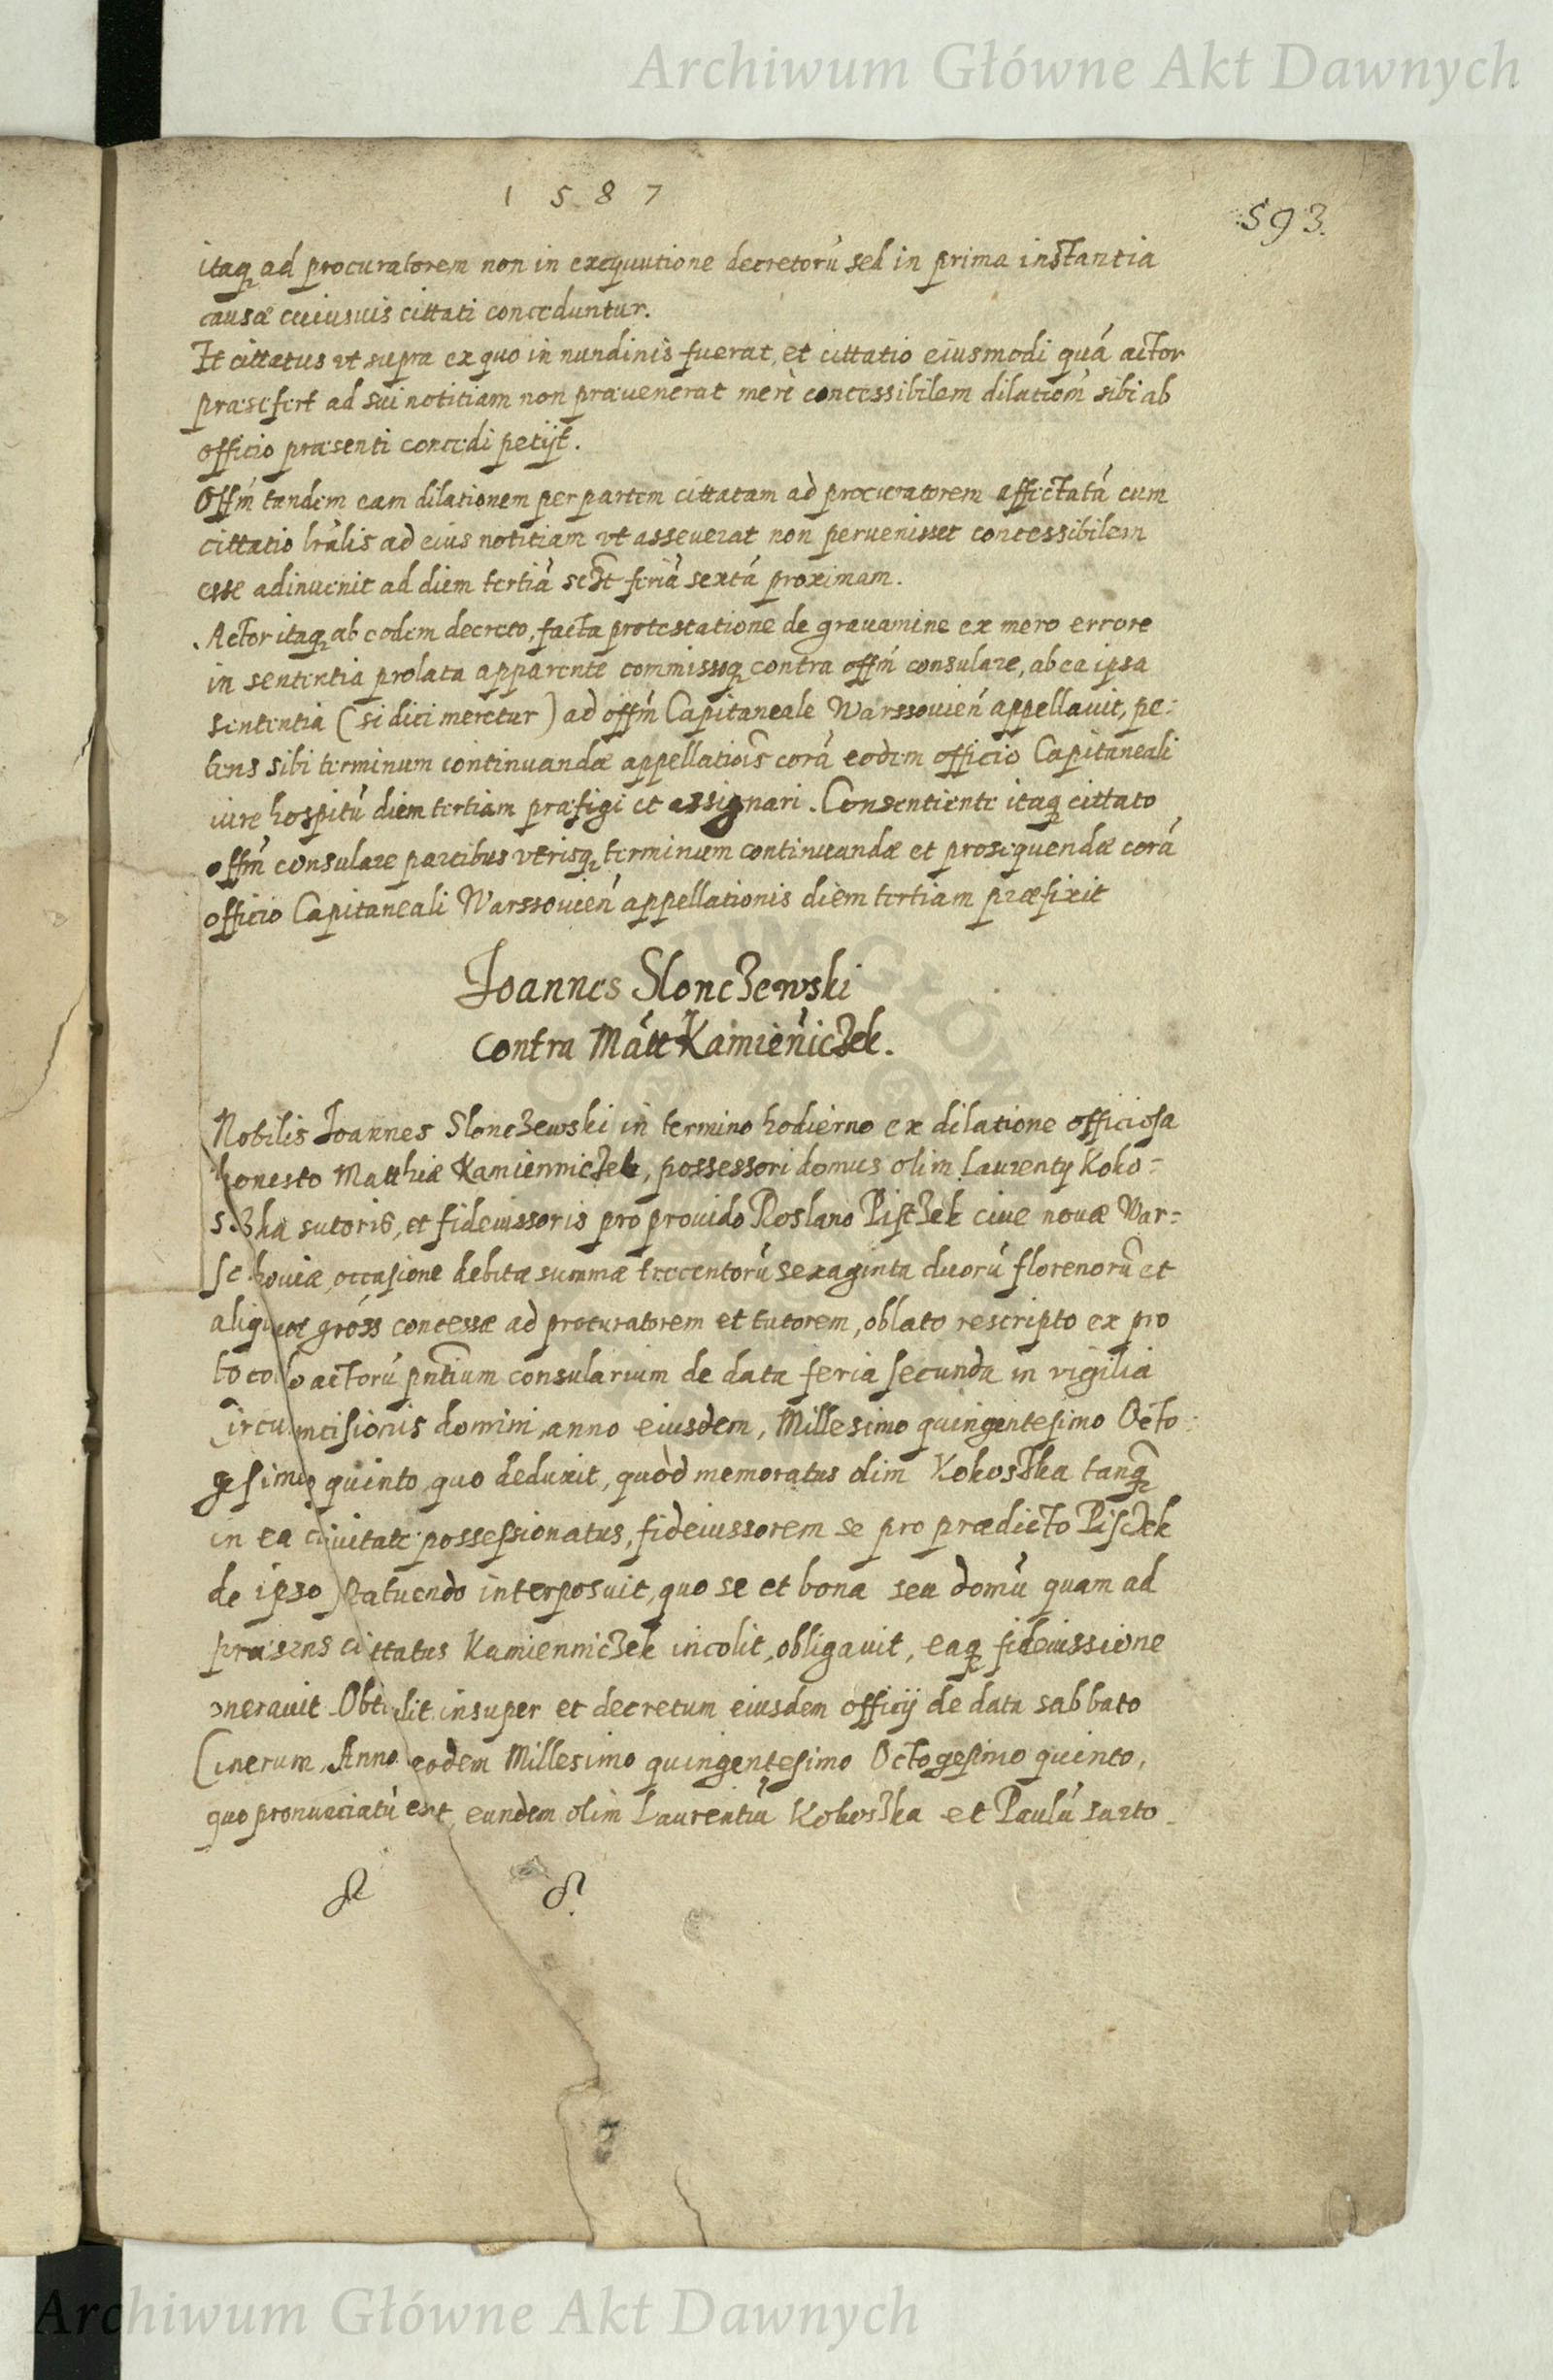 Archiwum Główne Akt Dawnych
1 5 8 7
593.
itaq ad procuratorem non in exequutione decretorũ sed in prima instantia
causæ cuiusuis cittati conceduntur.
Et cittatus vt supra ex quo in nundinis fuerat, et cittatio eiusmodi quá actor
præsefert ad sui notitiam non præuenerat merè concessibilem dilatioñ sibi ab
officio præsenti concedi petijt.
Offm̃ tandem eam dilationem per partem cittatam ad procuratorem affectatá cum
cittatio lrãlis ad eius notitiam vt asseuerat non peruenisset concessibilem
esse adinuenit ad diem tertiá feriá sextá proximam.
Actor itaq ab eodem decreto, facta protestatione de grauamine ex mero errore
in sententia prolata apparente commissoq contra offm̃ consulare, ab ea ipsa
sententia (si dici meretur) ad offm̃ Capitaneale Warssouieñ appellauit, pe:
tens sibi terminum continuandæ appellatiois̃ corá eodem officio Capitaneali
iure hospitũ diem tertiam præfigi et assignari. Consentiente itaq cittato
offm̃ consulare partibus vtrisq terminum continuandæ et prosequendæ corá
officio Capitaneali Warssouieñ appellationis diem tertiam præfixit
Joannes Slonczewski
contra Matt Kamieniczek.
Nobilis Joannes Slonczewski in termino hodierno ex dilatione officiosa
honesto Matthiæ Kamienniczek, possessori domus olim Laurentij Koko=
szka sutoris, et fideiussoris pro prouido Roslano Pisczek ciue nouæ War=
schouiæ, occasione debitæ summæ trecentorũ sexaginta duorũ florenorũ et
aliquot gróss concessæ ad procuratorem et tutorem, oblato rescripto ex pro
tocollo actorũ pñtium consularium de data feria secunda in vigilia
Circumcisionis domini, anno eiusdem, Millesimo quingentesimo Octo:
gesimo quinto, quo deduxit, quòd memoratus olim Kokoszka tanq̃
in ea ciuitate possessionatus, fideiussorem se pro prædicto Pisczek
de ipso statuendo interposuit, quo se et bona seu domũ quam ad
præsens cittatus Kamienniczek incolit, obligauit, eaq fideiussione
onerauit. Obtulit insuper et decretum eiusdem officij de data sabbato
Cinerum, Anno eodem Millesimo quingentesimo Octogesimo quinto,
quo pronunciatũ est, eundem olim Laurentiũ Kokoszka et Paulũ sarto
Archiwum Główne Akt Dawnych